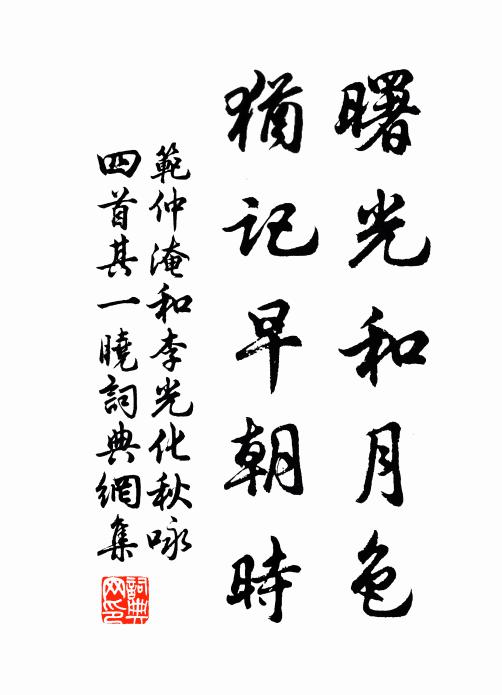 曙光和月色
猶記早朝時
範仲淹和李光化秋咏
四首其一曉詞典網集
詞典
网印